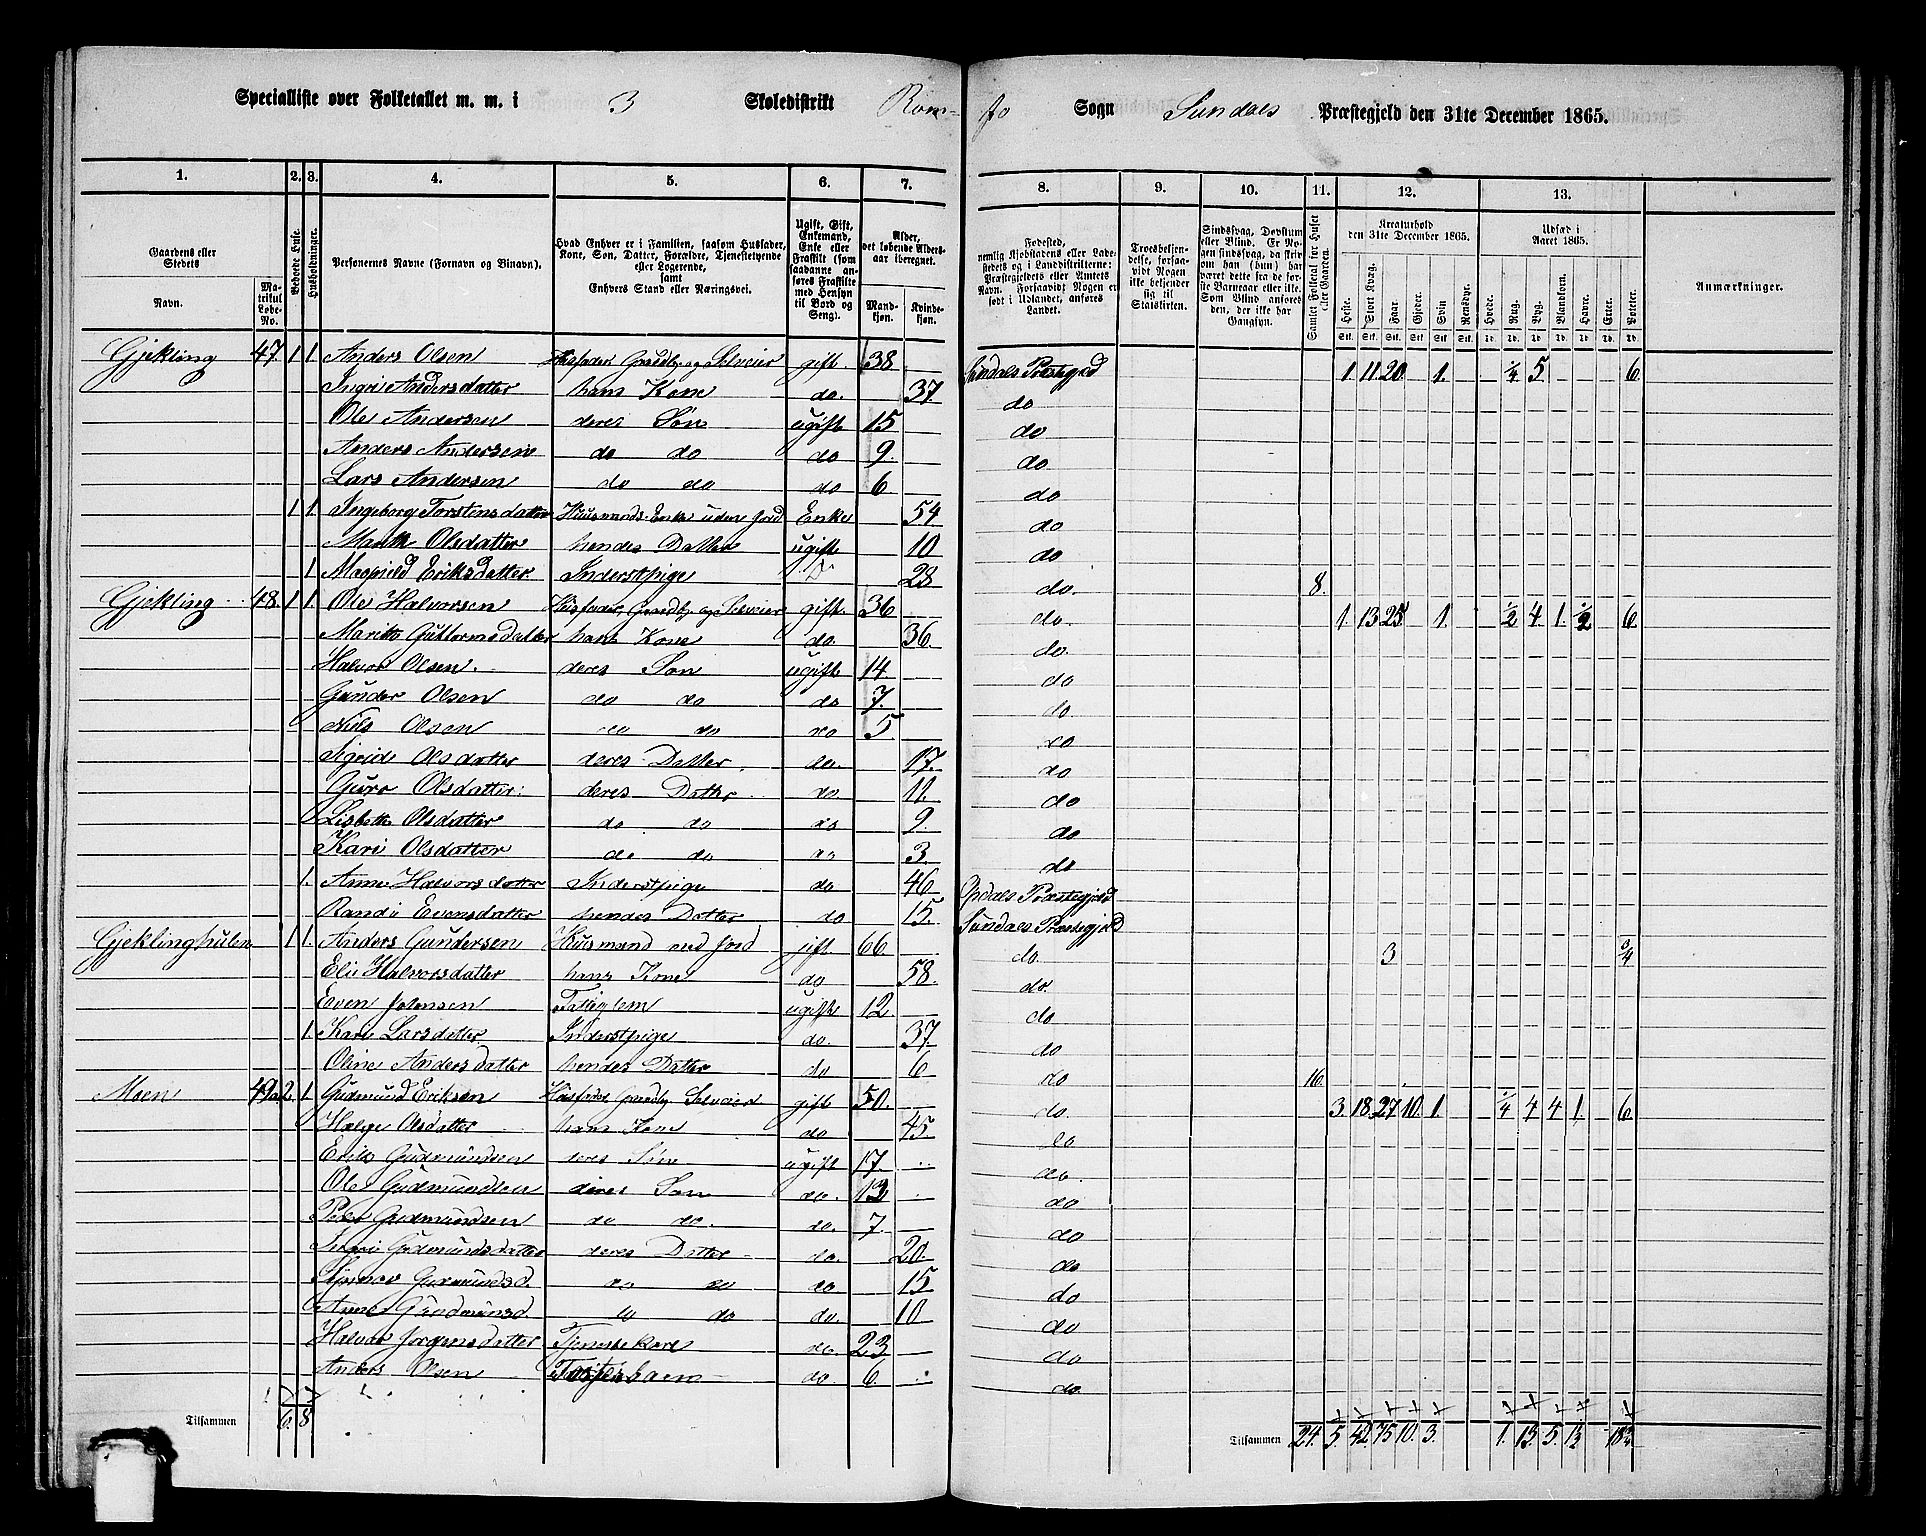 Specialliste over Folketallet m. m. i 3 Skoledistrikt Rom- fo Sogn Sundals Præstegjeld den 31te December 1865.
1. 2. 3. 4. 5. 6. 7. 8. 9. 10. 11. 12. 13.
Gaardens eller Stedets Navn. Matrikul Løbe-No.
Beboede Huse.
Husholdninger.
Personernes Navne (Fornavn og Binavn).
Hvad Enhver er i Familien, saasom Husfader, Kone, Søn, Datter, Forældre, Tjenestetyende eller Logerende, samt Enhvers Stand eller Næringsvei.
Ugift, Gift, Enkemand, Enke eller Fraskilt (som saadanne anføres Fraskilte med Hensyn til Bord og Seng).
Alder, det løbende Aldersaar iberegnet. Mandkjøn. Kvindekjøn.
Fødested, nemlig Kjøbstadens eller Ladestedets og i Landdistrikterne: Præstegjeldets eller Amtets Navn. Forsaavidt Nogen er født i Udlandet, anføres Landet.
Troesbekjendelse, forsaavidt Nogen ikke bekjender sig til Statskirken.
Sindssvag, Døvstum eller Blind. Er Nogen sindssvag, da skriv om han (hun) har været dette fra de første Barneaar eller ikke. Som Blind anføres den, der ikke har Gangsyn.
Samlet Folketal for Huset eller Gaarden.
Kreaturhold den 31te December 1865. Heste. Stort Kvæg. Faar. Gjeder. Sviin. Rensdyr.
Udsæd i Aaret 1865. Hvede. Rug. Byg. Blandkorn. Havre. Erter. Poteter.
Anmærkninger.
Gjekling 47. 1 1. Anders Olsen Husfader Gaardby og Selveier gift. 38 Sundals Præstegjld 1. 11. 20. 1. 1/4 5. 6.
Ingri Andersdatter hans Kone do. 37. do
Ole Andersen deres Søn ugift 15 do
Anders Andersen do do do 9. do
Lars Andersen do do do 6 do
1 1. Ingeborg Torstensdatter Huusmands Enke uden Jord Enke 54 do
Marith Olsdatter hendes Datter ugift 10 do
1 Magnild Eriksdatter Inderstpige Do 28 do. 8.
Gjekling 48. 1 1. Ole Halvorsen Husfader Gaardby og Selveier gift. 36 do. 1. 13 25 1. 1/2 4. 1. 1/2 6.
Marith Guttormsdatter hans Kone do 36. do.
Halvor Olsen. deres Søn ugift 14. do
Gunder Olsen do do do 7. do
Nils Olsen do do do 5 do
Sigrid Olsdatter deres Datter. do. 17. do
Guro Olsdatter: deres Datter do. 11. do
Lisbeth Olsdatter do do do 9. do
Kari Olsdatter do do do 3. do
1. Anne Halvorsdatter Inderstpige do 46 Opdals Præstegjeld
Randi Evensdatter hendes Datter do 15. Sundals Præstegjeld
Gjeklinghulen 1 1. Anders Gundersen Huusmand med Jord gift. 66. do. 3 3/4
Eli Halvorsdatter hans Kone do 58. do.
Even Johnsen ugift 12 do
1. Kari Larsdatter Inderstpige do. 37. do
Oline Andersdatter hendes Datter do 6 do 16.
Moen 49a 2. 1. Gudmund Eriksen Husfader Gaardby Selveier gift 50. do. 3. 18. 27. 10. 1. 1/4 4 4 1. 6.
Helge Olsdatter hans Kone do 45. do
Erik Gudmundsen deres Søn ugift 17. do.
Ole Gudmundsen deres Søn do. 13 do
Peder Gudmundsen do do. do. 7. do
Ingri Gudmundsdatter deres Datter do. 20. do
Synnøv Gudmundsd. do do do 15 do
Anne Gudmundsd. do do do. 10 do
Halvor Jørgensdatter Tjenestekarl do. 23. do
Anders Olsen do 6. do.
Tilsammen 6. 8 Tilsammen 24. 5. 42. 75 10. 3. 1. 13. 5. 1½ 18¾